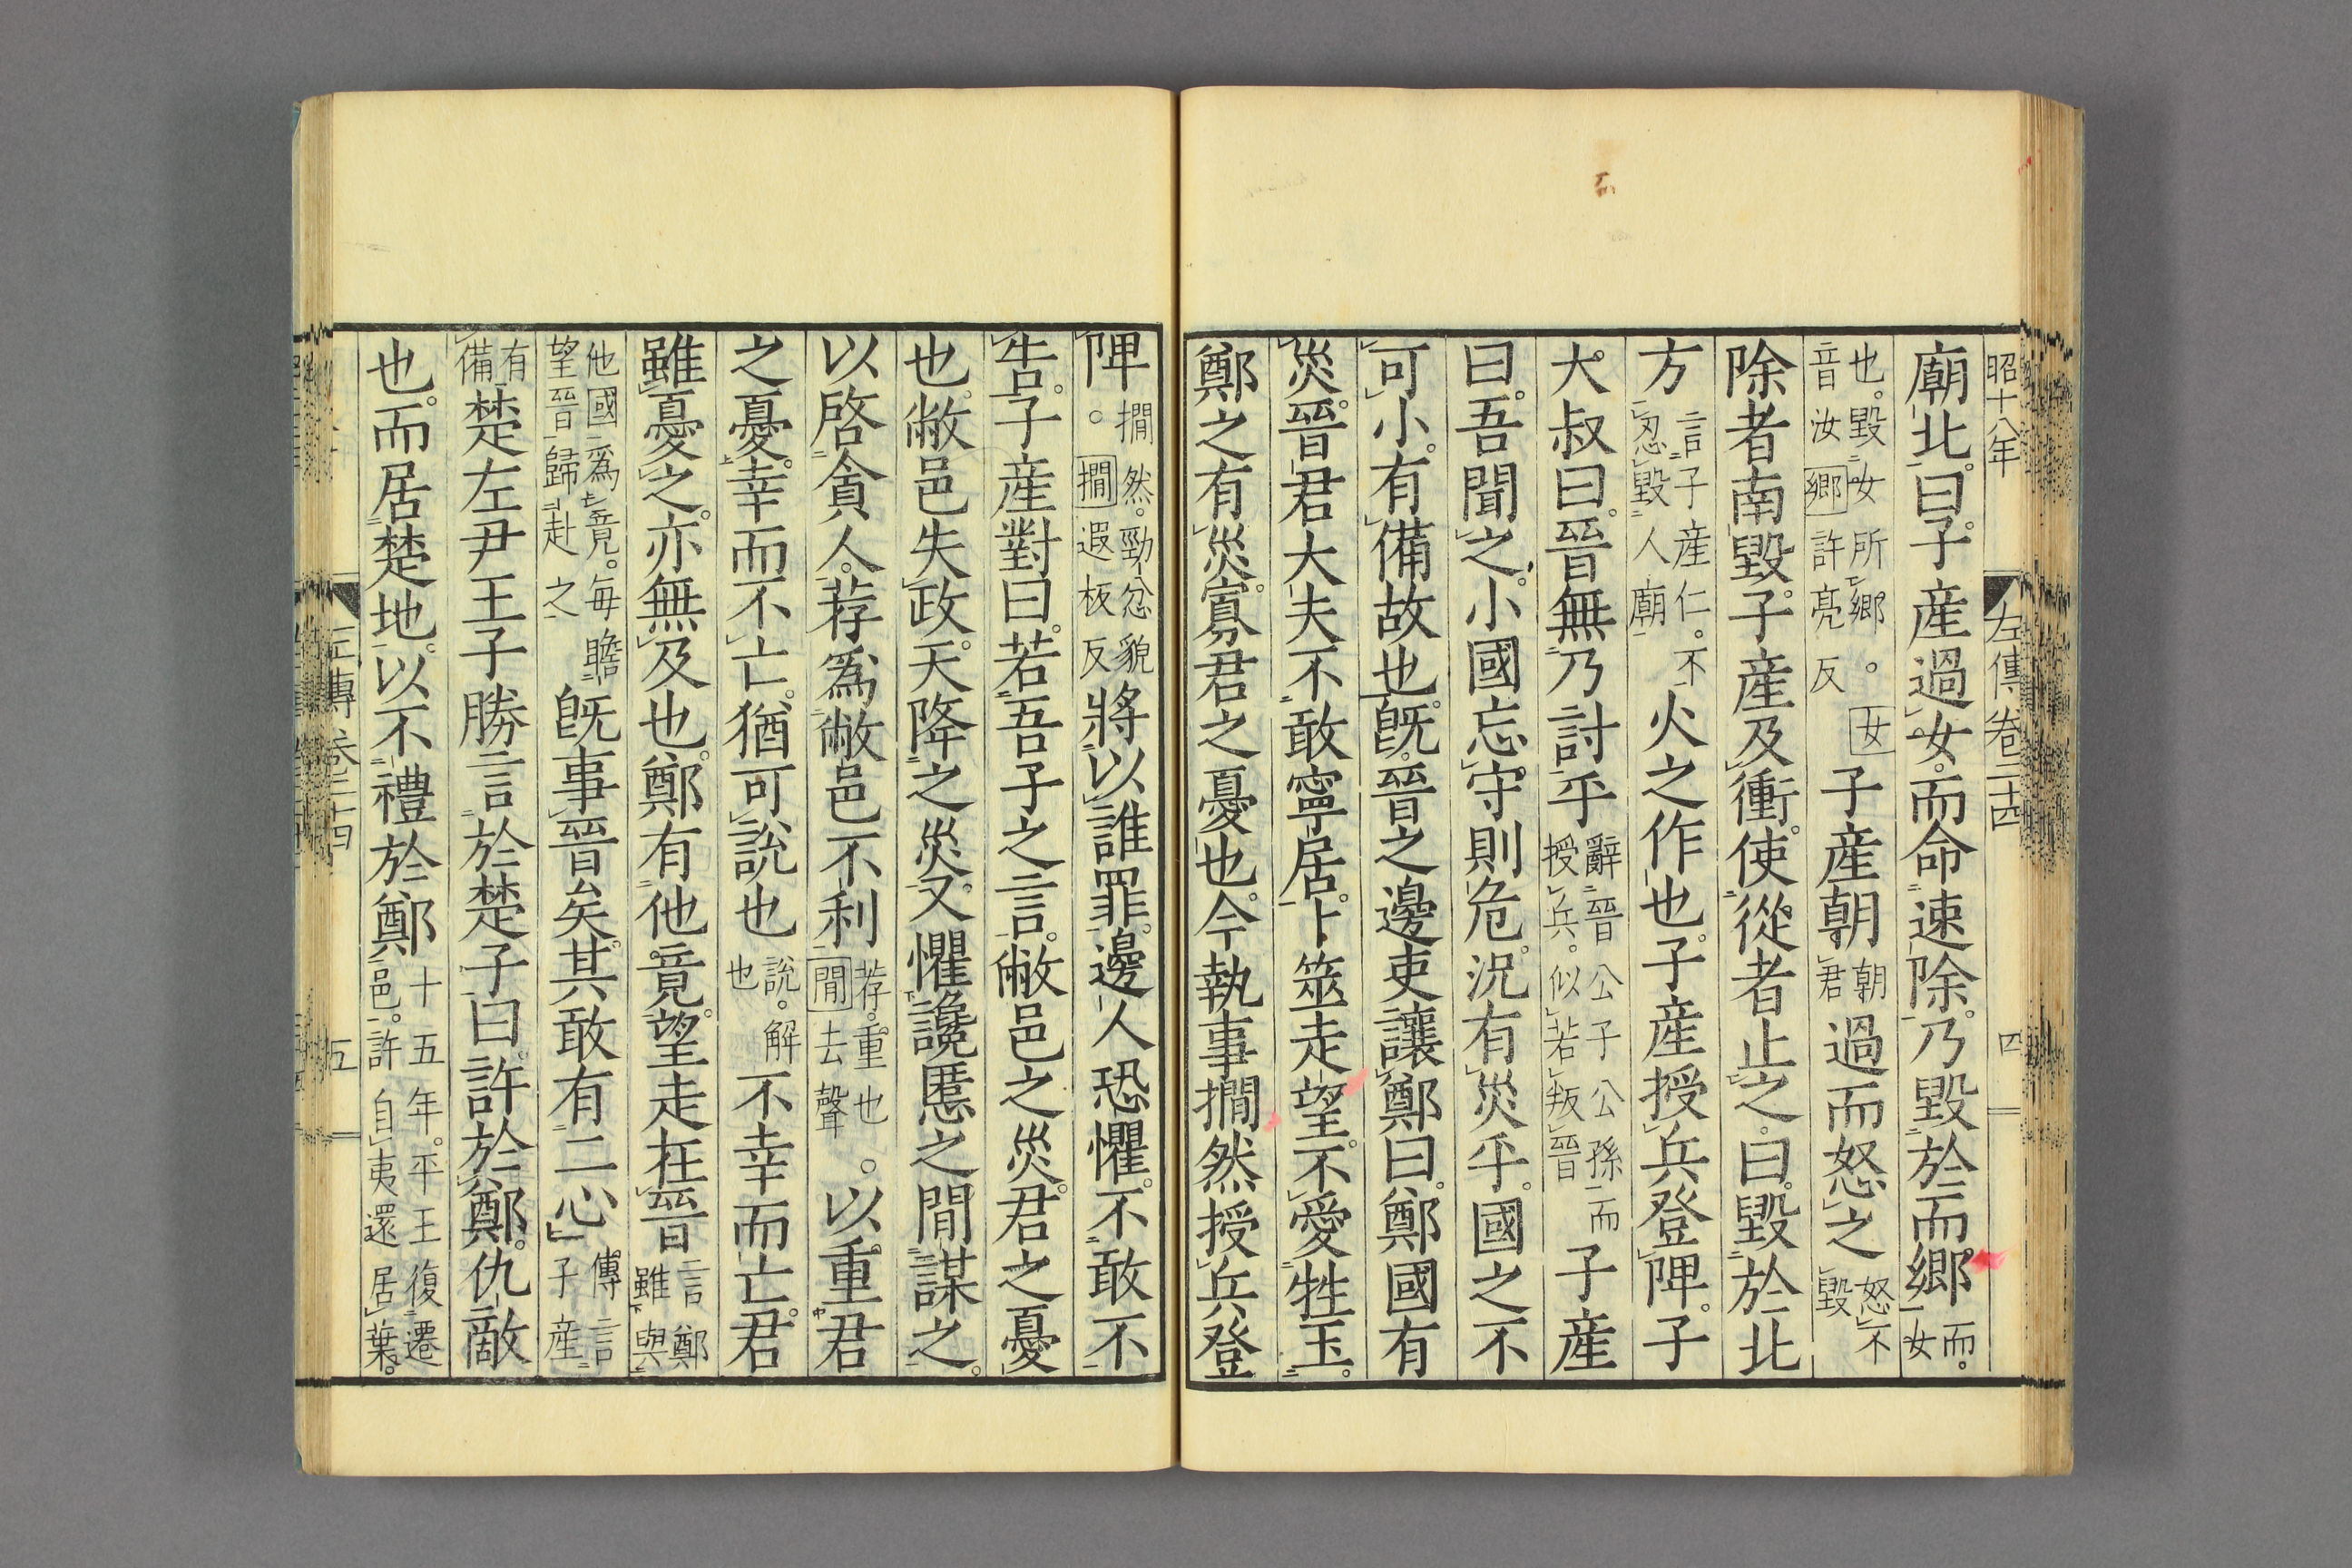 昭十八年 左傳卷二十四 四
廟北。曰。子產過女。而命速除。乃毀於而鄉 而。女
也。毀女所鄉。女音汝鄉許亮反 子產朝 朝君 過而怒之 怒不毀
除者南毀。子產及衝。使從者止之。曰。毀於北
方 言子產仁。不忍毀人廟 火之作也。子產授兵登陴。子
大叔曰。晉無乃討乎 辭晉公子公孫而授兵。似若叛晉 子產
曰。吾聞之。小國忘守則危。況有災乎。國之不
可小。有備故也。既。晉之邊吏讓鄭曰。鄭國有
災。晉君大夫不敢寧居。卜筮走望。不愛牲玉。
鄭之有災。寡君之憂也。今執事撊然授兵登
陴。 撊然。勁忿貌撊遐板反 將以誰罪。邊人恐懼。不敢不
告。子產對曰。若吾子之言。敝邑之災。君之憂
也。敝邑失政。天降之災。又懼讒慝之閒謀之。
以啓貪人。荐爲敝邑不利 荐。重也閒去聲 。以重君
之憂。幸而不亡。猶可說也 說。解也 不幸而亡。君
雖憂之。亦無及也。鄭有他竟。望走在晉 言鄭雖與
他國爲竟。每瞻望晉歸赴之 既事晉矣。其敢有二心 傳言子產
有備 楚左尹王子勝言於楚子曰。許於鄭。仇敵
也。而居楚地。以不禮於鄭 十五年。平王復遷邑。許自夷還居葉。
左傳卷二十四 五